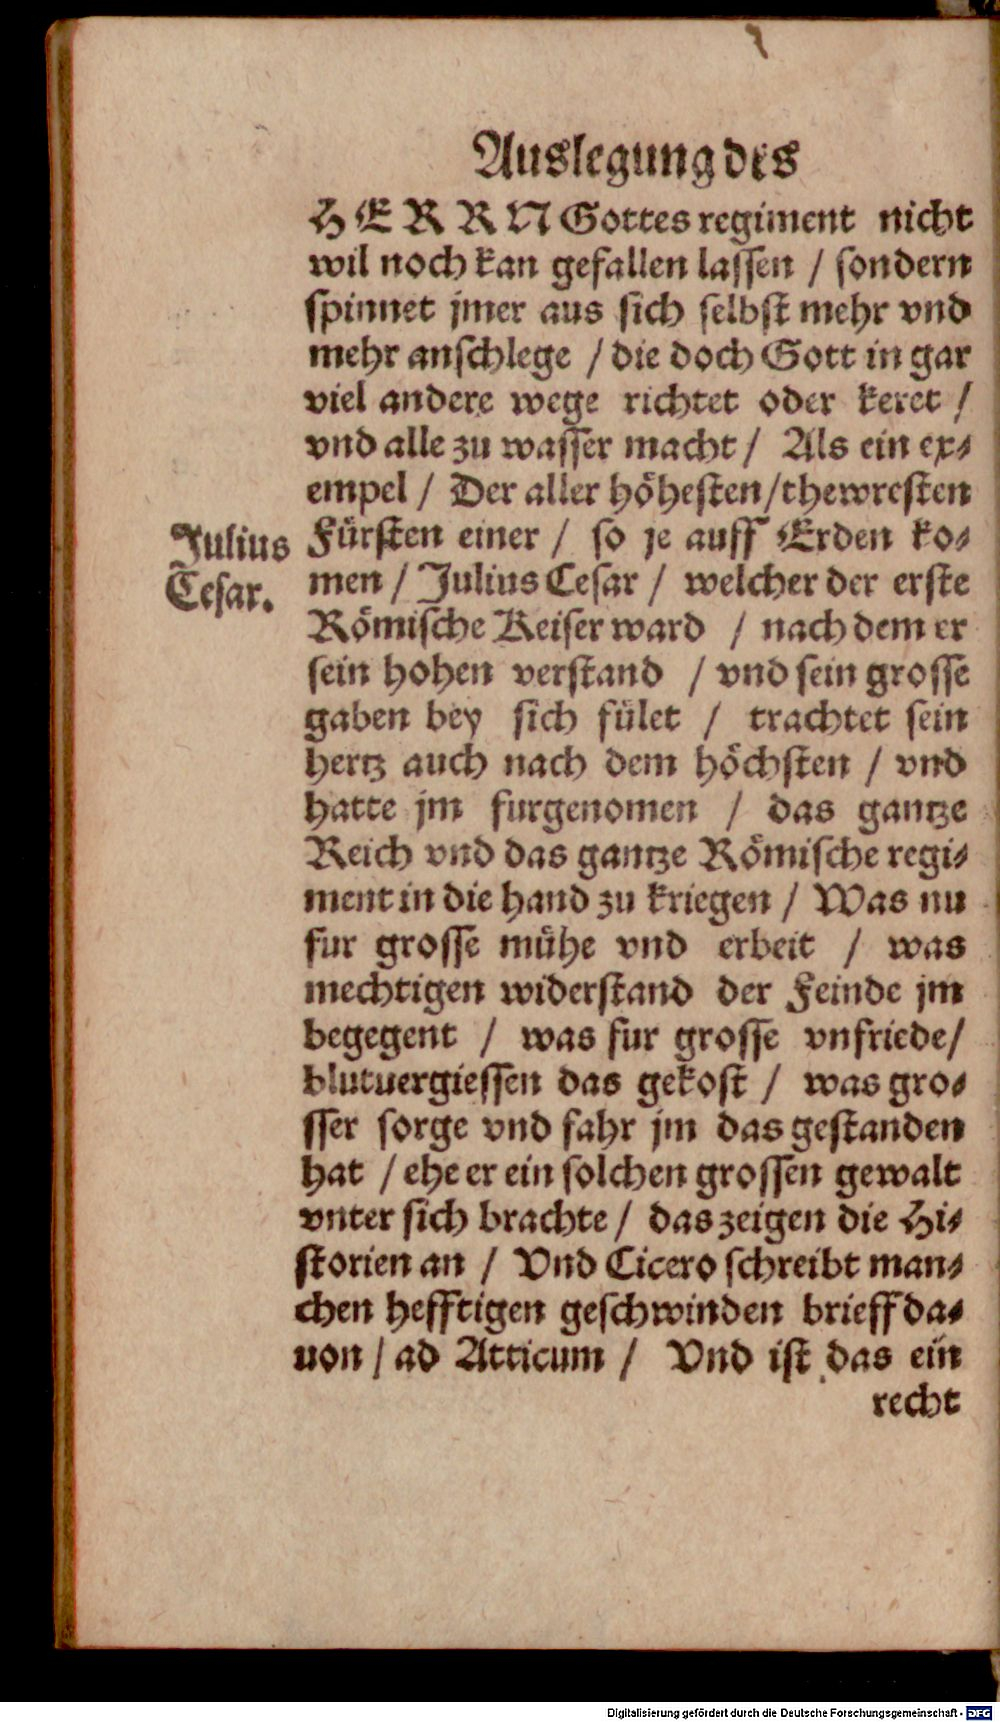 Auslegung des
HERRN Gottes regiment nicht
wil noch kan gefallen lassen / sondern
spinnet jmer aus sich selbst mehr vnd
mehr anschlege / die doch Gott in gar
viel andere wege richtet oder keret /
vnd alle zu wasser macht / Als ein ex⸗
empel / Der aller höhesten / thewresten
Julius
Cesar.
Fürsten einer / so je auff Erden ko⸗
men / Julius Cesar / welcher der erste
Römische Keiser ward / nach dem er
sein hohen verstand / vnd sein grosse
gaben bey sich fület / trachtet sein
hertz auch nach dem höchsten / vnd
hatte jm furgenomen / das gantze
Reich vnd das gantze Römische regi⸗
ment in die hand zu kriegen / Was nu
fur grosse mühe vnd erbeit / was
mechtigen widerstand der Feinde jm
begegent / was fur grosse vnfriede /
blutuergiessen das gekost / was gro⸗
sser sorge vnd fahr jm das gestanden
hat / ehe er ein solchen grossen gewalt
vnter sich brachte / das zeigen die Hi⸗
storien an / Vnd Cicero schreibt man⸗
chen hefftigen geschwinden brieff da⸗
uon / ad Atticum / Vnd ist das ein
recht
Digitalisierung gefördert durch die Deutsche Forschungsgemeinschaft - DFG